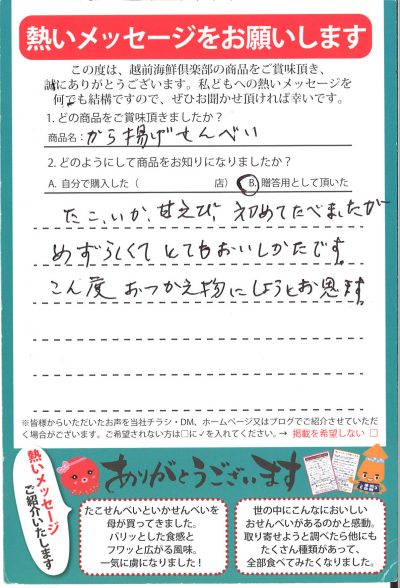 熱いメッセージをお願いします
この度は、越前海鮮倶楽部の商品をご賞味頂き、
誠にありがとうございます。私どもへの熱いメッセージを
何でも結構ですので、ぜひお聞かせ頂ければ幸いです。
1. どの商品をご賞味頂きましたか？
商品名：から揚げせんべい
2. どのようにして商品をお知りになりましたか？
A. 自分で購入した（ 店） B. 贈答用として頂いた
たこ、いか、甘えび、初めてたべましたが
めずらしくてとてもおいしかたです。
こん度おつかえ物にしようとお思ます。
※皆様からいただいたお声を当社チラシ・DM、ホームページ又はブログでご紹介させていただ
く場合がございます。ご希望されない方は□に✓を入れてください。→ 掲載を希望しない □
熱いメッセージ
ご紹介いたします
ありがとうございます
たこせんべいといかせんべいを
母が買ってきました。
パリッとした食感と
フワッと広がる風味。
一気に虜になりました！
世の中にこんなにおいしい
おせんべいがあるのかと感動。
取り寄せようと調べたら他にも
たくさん種類があって、
全部食べてみたくなりました。